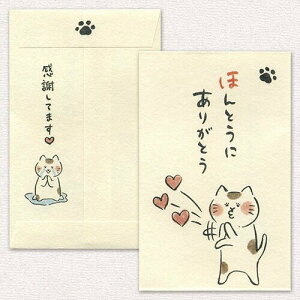 感謝してます
ほんとうに
ありがとう